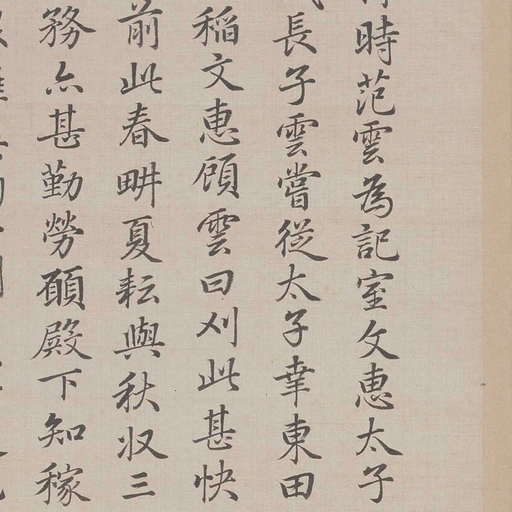 時范雲為記室文惠太子
長子雲嘗從太子幸東田
稻文惠顧雲曰刈此甚快
前此春畊夏耘與秋收三
務亦甚勤勞願殿下知稼